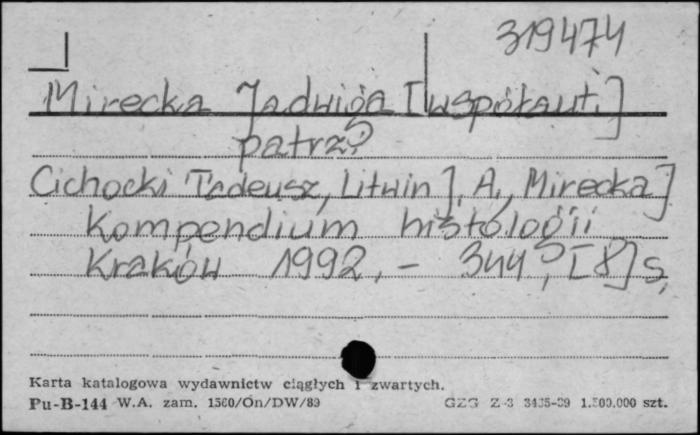 319474
Mirecka Jadwiga [współaut.]
patrz:
Cichocki Tadeusz, Litwin J. A., Mirecka J
Kompendium histologii
Kraków 1992, - 344, [8] s,
Karta katalogowa wydawnictw ciągłych i zwartych.
Pu-B-144 W.A. zam. 1560/On/DW/89 GZG Z-3 1.500.000 szt.